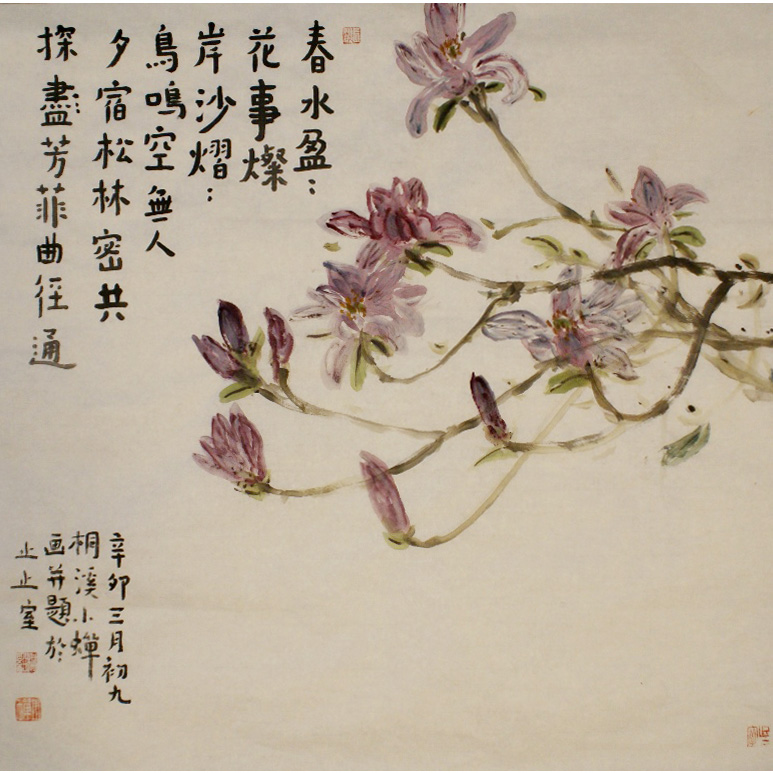 春水盈〻
花事燦
岸沙熠〻
鳥鳴空無人
夕宿松林密共
探盡芳菲曲径通
辛卯三月初九
桐溪小蟬
画并題於
止止室